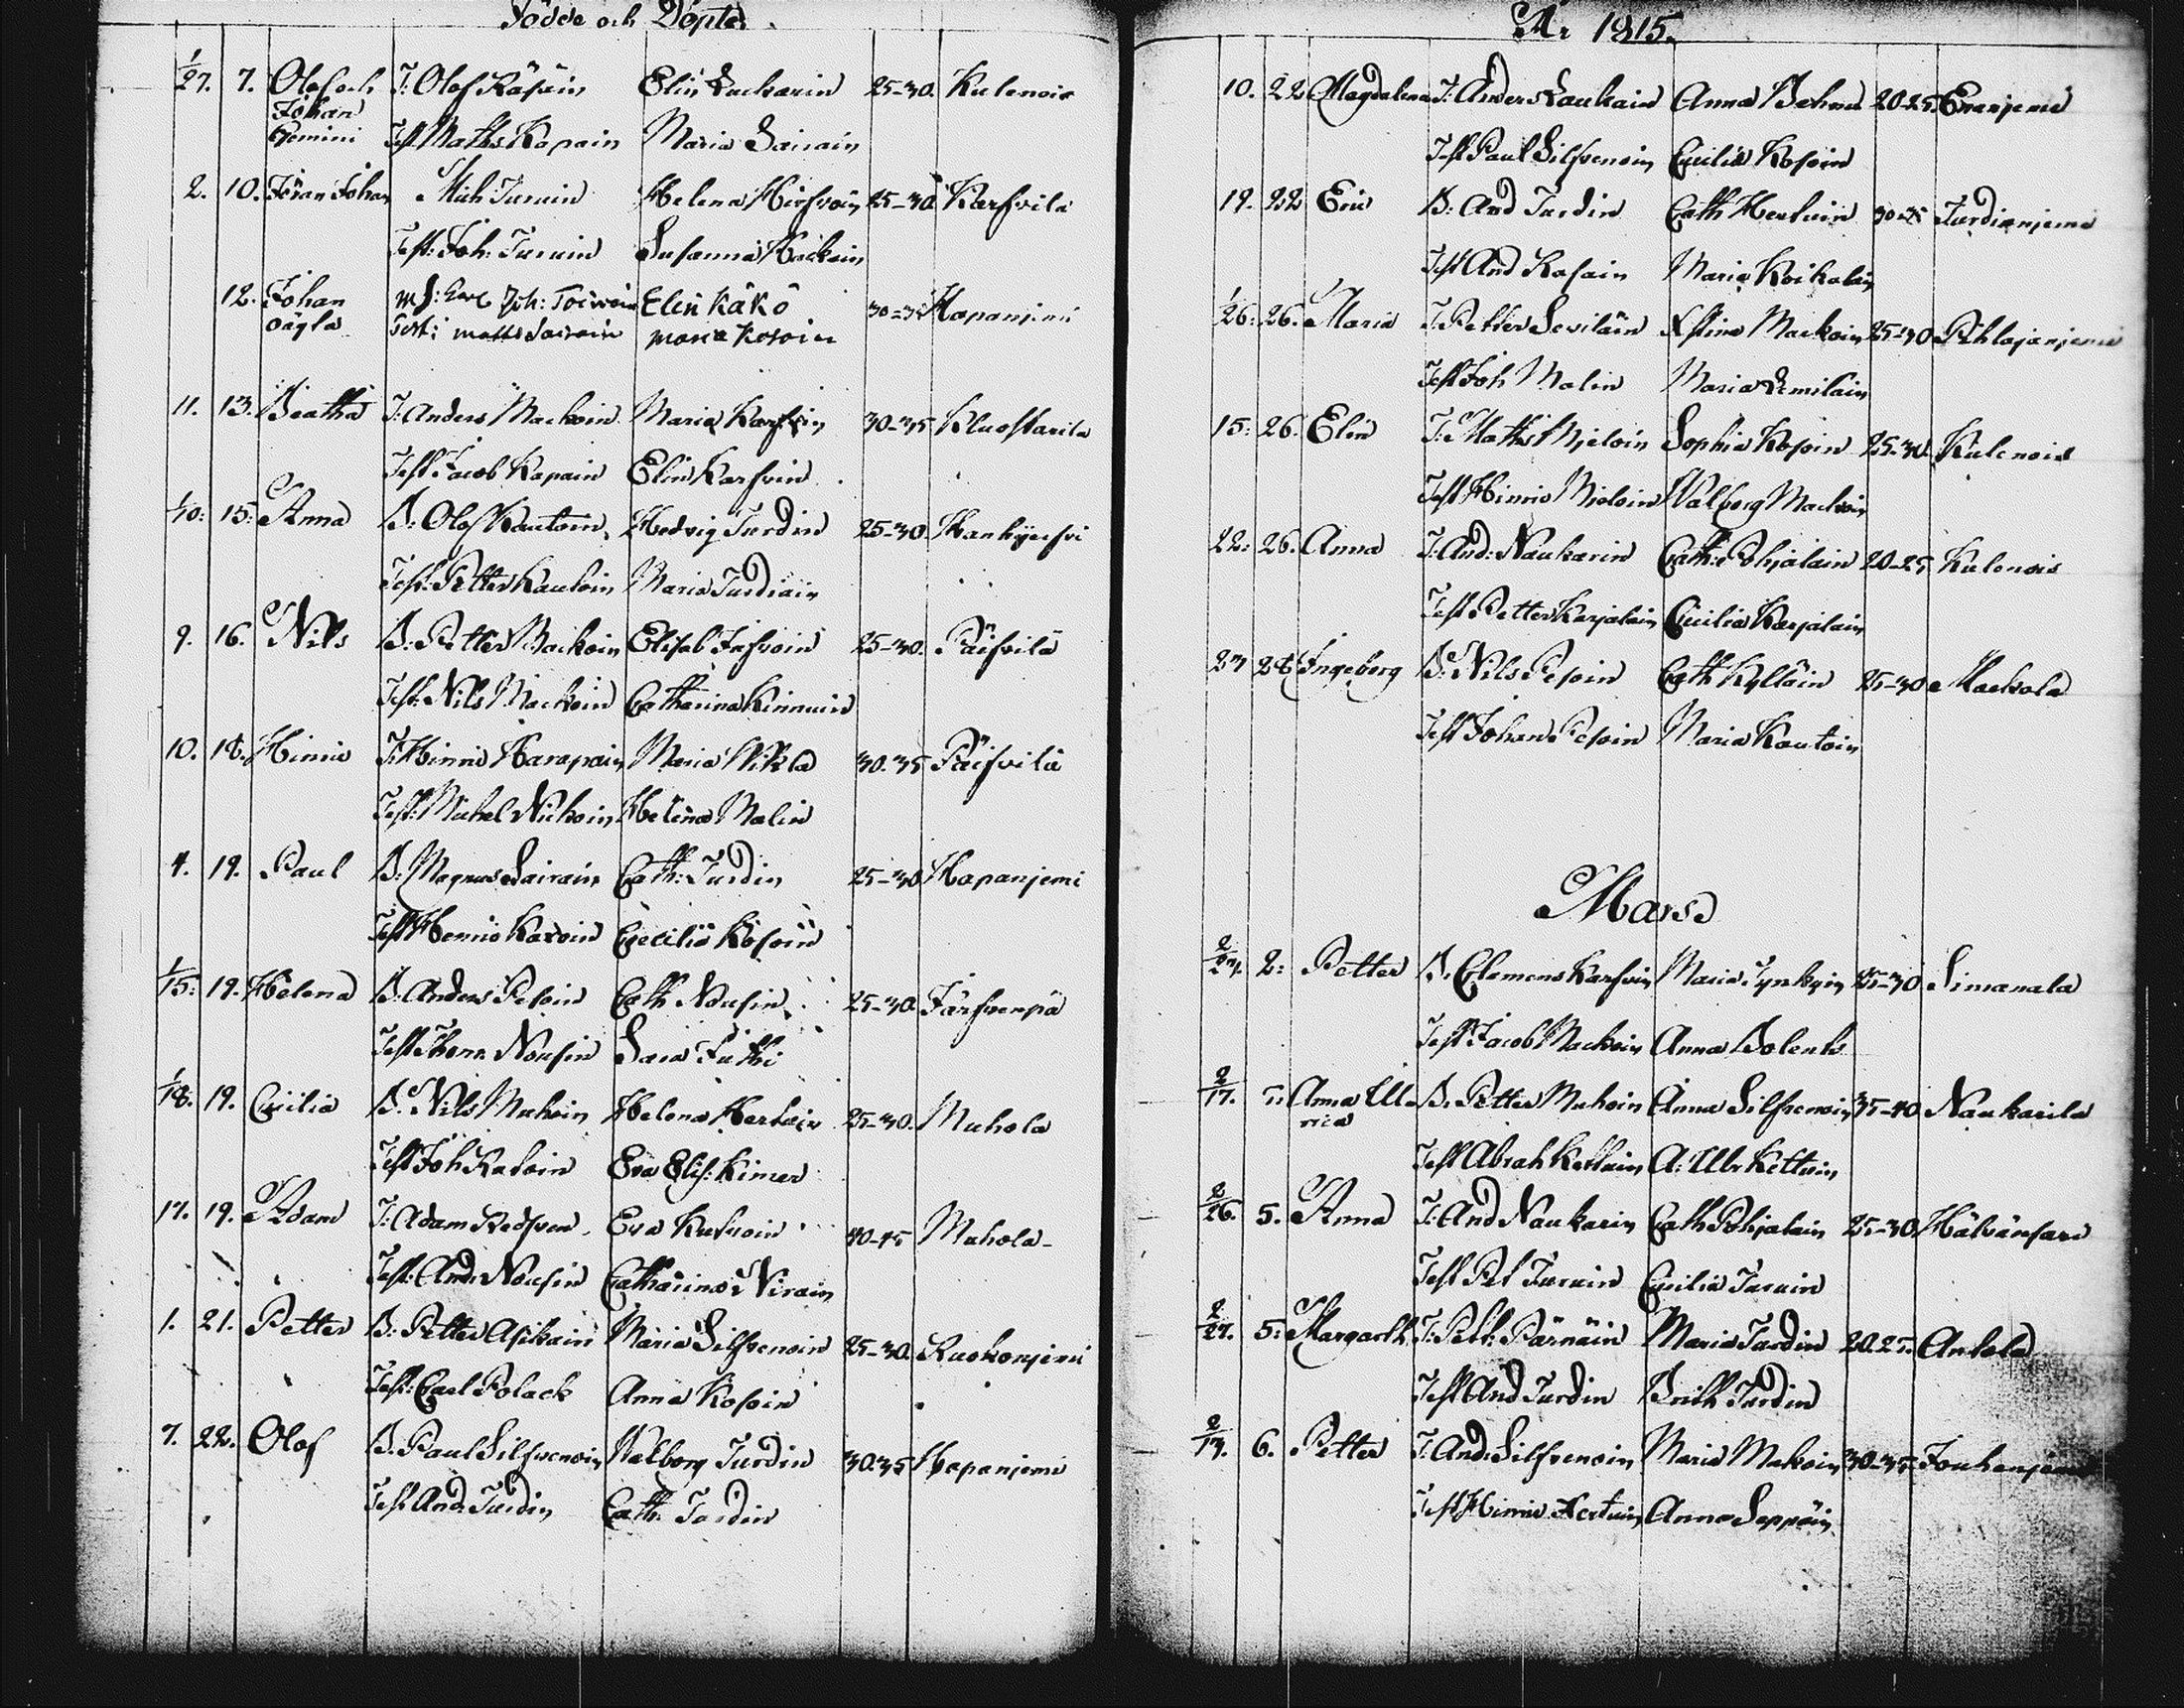 Födde och Döpte
1/27. 7. Olof och T: Olof Räsäin Elin 25-30. Kulenois
Johan
Gemini Test Maths Kapain Maria Sairain
2. 10. Jöran Johan Mich: Turuin Helena Hirfvoin 25-30 Karfvila
Test: Joh: Turuin Susanna Hackain
12. Johan Joh: Toivoin Elin Käkö 30=35 Hapanjemi
oägta Test: Matts Sairain Maria Kosoin
11. 13. Beatha T: Anders Mackoin Maria Karfvin 30-35
Test Jacob Kapain Elin Karfvin
1/10: 15: Anna B: Olof Kautoin Hedvig Turdin 25-30. Kankijerfvi
Test: Petter Kautoin Maria Turdiain
9. 16. Nils B: Petter Mackoin Elisab 25-30. Päifvilä
Test: Nils Mackoin Catharina Kinnuin
10. 18. Hinric T: Hinric Harapain Maria Nikla 30.35 Päifvilä
Test: Michel Nickoin Helena Malin
4. 19. Paul B: Magnus Sairain Cath: Turdin 25-30 Hapanjemi
Test Henric Karoin Cecilia Kosoin
1/15: 19. Helena B: Anders Pesoin Cath Nousin 25-30. Järfvenpä
Test Thom Nousin Sara Juthi
1/18. 19. Cecilia B: Nils Muhoin Helena Hertuin 25-30. Muhola
Test Joh Ratoin Eva Elis: Kimer
17. 19. Adam T: Adam Redfven Eva 40-45 Muhola
Test: And: Nousin Catharina Virain
1. 21. Petter B: Petter Asikain Maria Silfvenoin 25-30. Ruokonjemi
Test: Carl Polack Anna Kosoin
7. 22. Olof B: Paul Silfvenoin Walborg Turdin 30.35 Hapanjemi
Test And: Turdin Cath: Turdin
År 1815.
10. 22 Magdalena T: Anders Laukain Anna Behm 20-25. Enanjemi
Test Paul Silfvenoin Cecilia Kosoin
19. 22 Eric B: And Turdin Cath Hertuin 30-35 Turdianjemi
Test And Rasain Maria Koikalain
1/26: 26. Maria T: Petter Seviläin Stina Mackoin 25-30 Pihlajanjemi
Test Joh Malin Maria Lemiläin
15: 26. Elin T: Maths Mieloin Sophia Kosoin 25-30. Kulenois
Test Hinric Mieloin Walborg Mackoin
22: 26. Anna T: And: Naukarin Cath: Pohjalain 20-25 Kulenois
Test Petter Karjalain Cecilia Karjalain
27 28 Ingeborg B: Nils Pesoin Cath Kylläin 25-30 Mackola
Test Johan Pesoin Maria Kautoin
Mars
2/27. 2: Petter B. Clemens Karfvin Maria Tynkyin 25-30 Simanala
Test Jacob Mackoin Anna
2/17. Anna Ul- B. Petter Muhoin Anna Silfvenoin 35-40 Naukarila
rica
Test Abrah Kettuin A: Ulr Kettuin
2/26. 5. Anna T: And Naukarin Cath Pohjalain 25-30. Hälvänsari
Test Pet Turuin Cecilia Turuin
2/27. 5: Margareth T: Pett: Pärnäin Maria Turdin 20.25. Antola
Test And Turdin Brith Turdin
2/17. 6. Petter T: And Silfvenoin Maria Makoin 30-35. Jouhenjemi
Test Hinric Hertuin Anna Seppäin